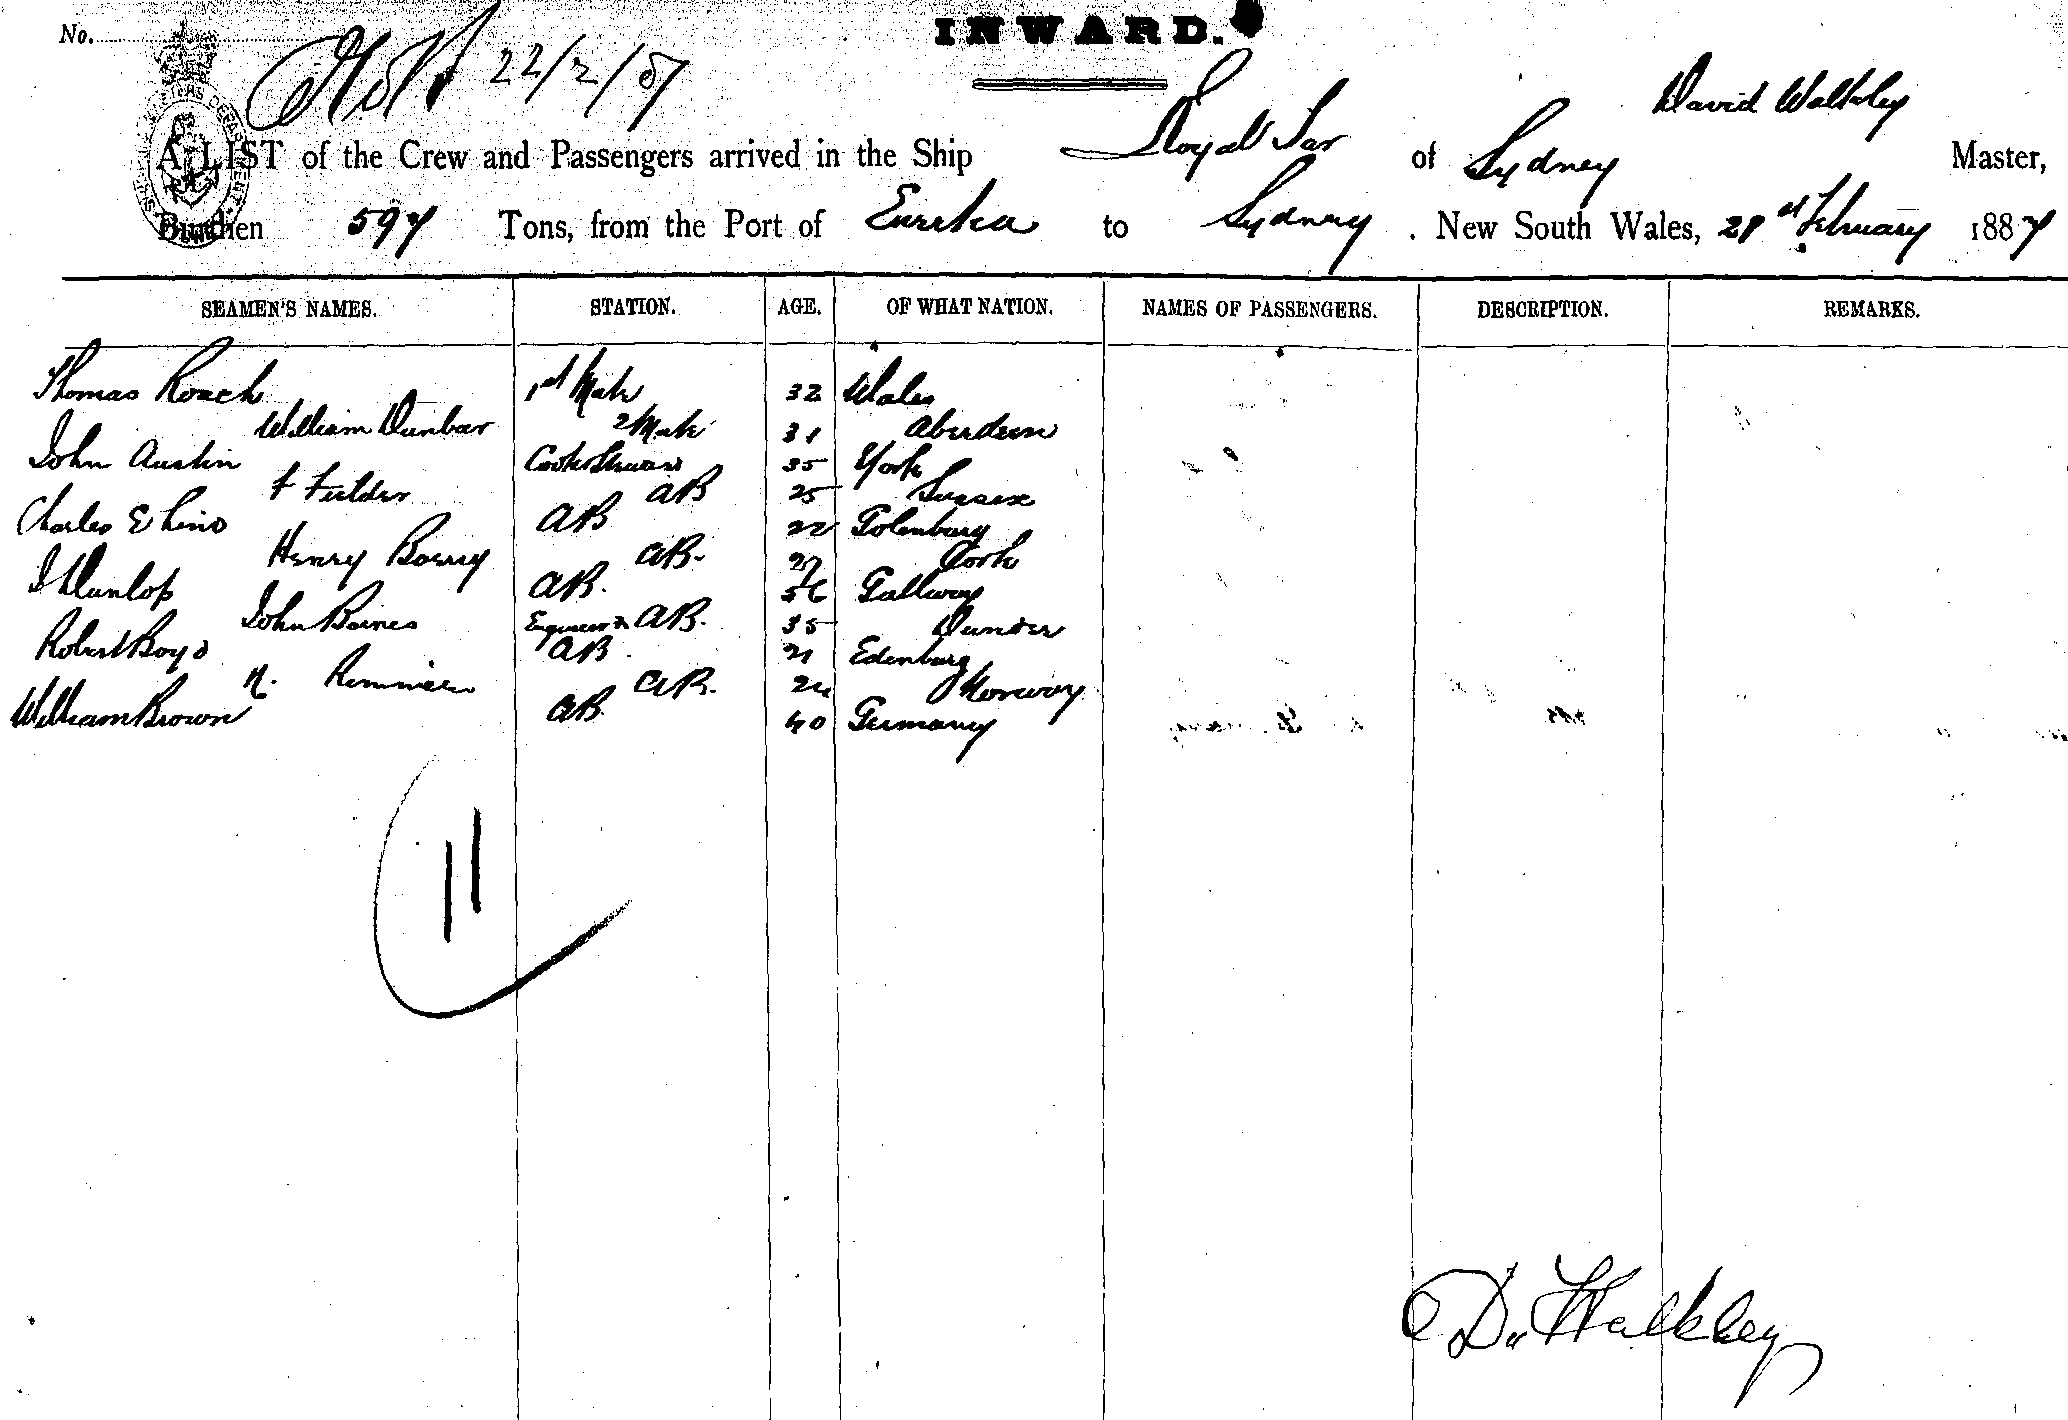 No.
22/2/87
INWARD.
David Walkley
A LIST of the Crew and Passengers arrived in the Ship Royal Tar of Sydney Master,
Burthen 597 Tons, from the Port of Eureka to Sydney . New South Wales, 21st February 1887
SEAMEN'S NAMES. STATION. AGE. OF WHAT NATION. NAMES OF PASSENGERS. DESCRIPTION. REMARKS.
Thomas Roach 1st Mate 32 Wales
William Dunbar 2 Mate 31 Aberdeen
John Austin Cook & Steward 35 York
F Fielder AB 25 Sussex
Charles E Lind AB 22 Gotenburg
Henry Berry AB. 27 Cork
J Dunlop AB. 56 Gallway
John Baines Engineer & AB. 35 Dundee
Robert Boyd AB 21 Edenburg
N. AB. 24 Norway
William Brown AB 40 Germany
11
D. Walkley